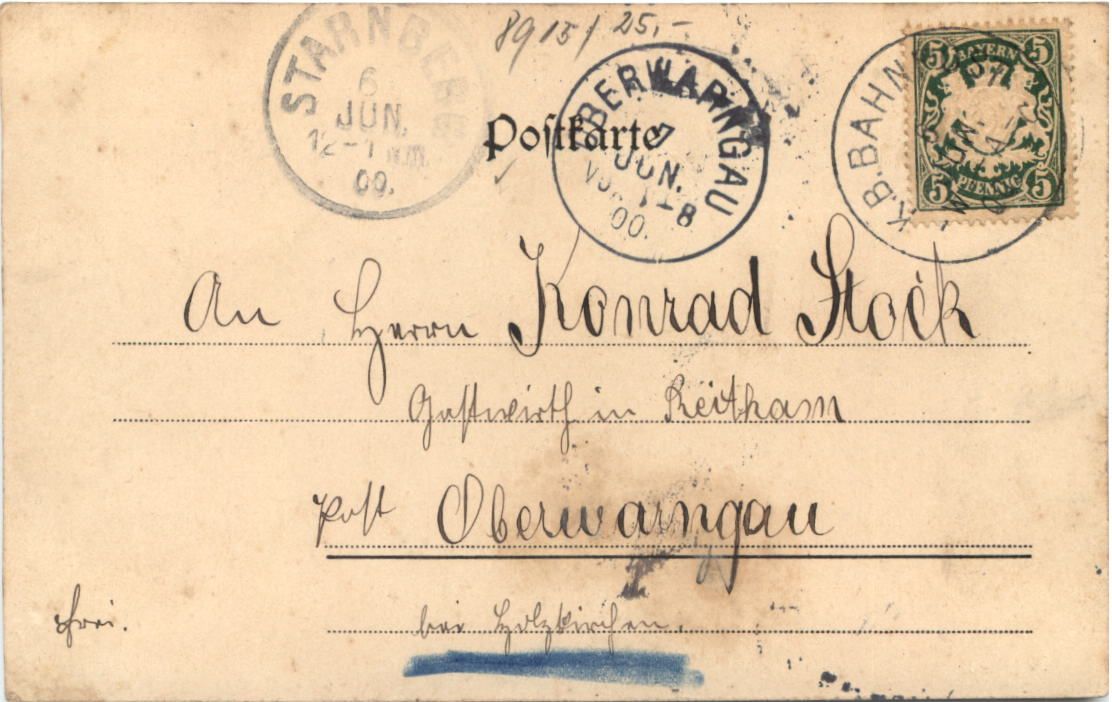 8915/ 25,-
STARNBERG
6
JUN.
12-1 Nm.
00.
OBERWARNGAU
7
JUN.
VOR 7-8
00.
K.B.BAHN
BAYERN
5 5
5 5
PFENNIG
Postkarte
An Herrn Konrad Stock
Gastwirth in Reitham
Post Oberwarngau
frei.
bei Holzkirchen.